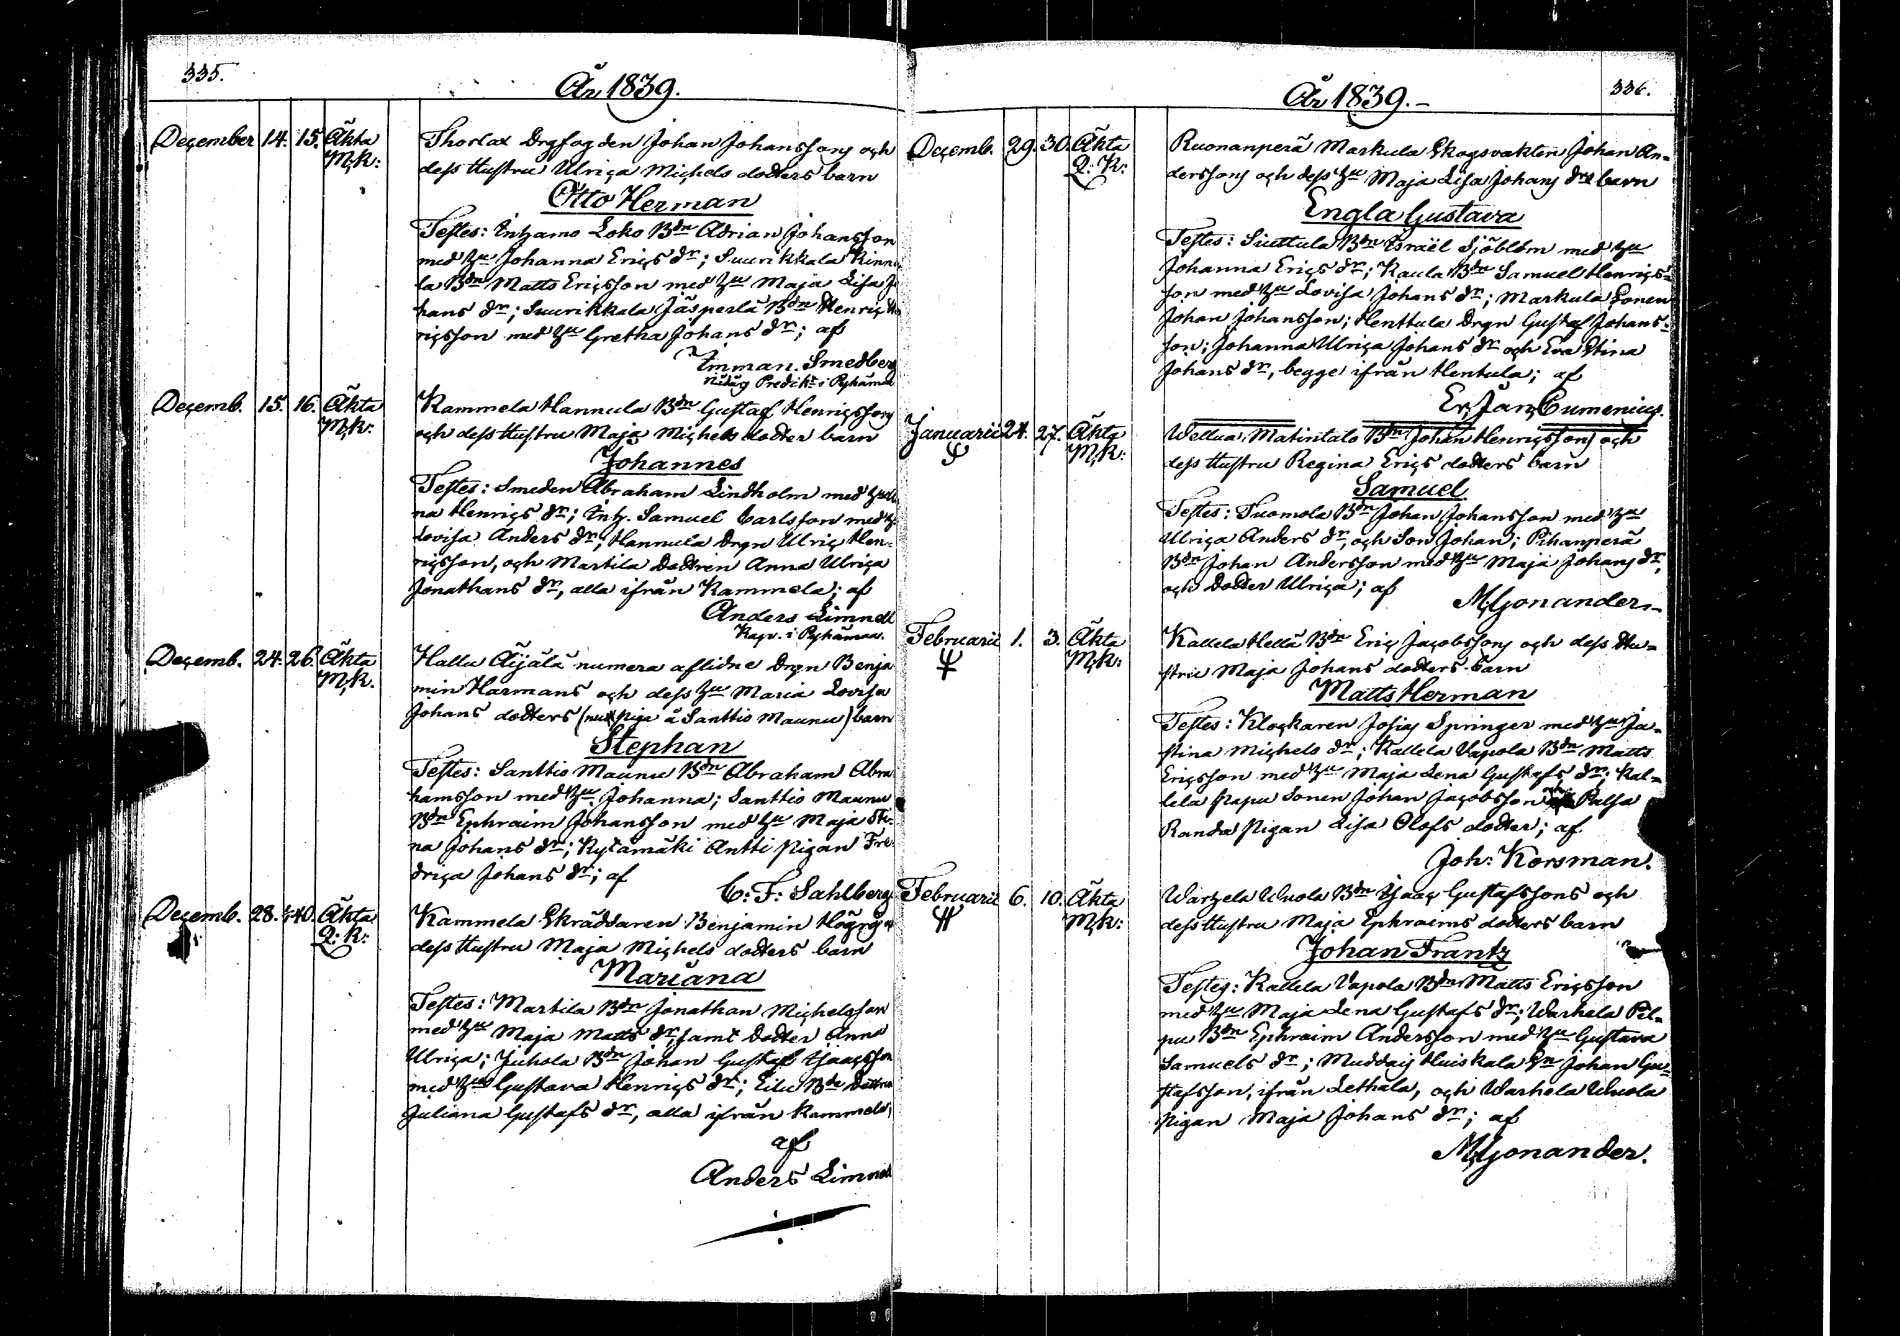 335.
År 1839.
December 14. 15. Äkta
M.K:
Thorlax Drgfogden Johan Johanssons och
dess Hustru Ulrica Michels dotters barn
Otto Herman
Testes: Inh. Loko Bdn Adrian Johansson
med Hu Johanna Erics dr; Suurikkala Rinna
la Bdn Matts Ericsson med Hu Maja Lisa Jo
hans dr; Suurikkala Jäsperlä Bdn Henric Hen
ricsson med Hu Gretha Johans dr; af
Imman. Smedberg
Nådåg Predikt i Pyhämaa
Decemb. 15. 16. Äkta
M.K:
Kammela Hannula Bdn Gustaf Henricssons
och dess Hustru Maja Michels dotter barn
Johannes
Testes: Smeden Abraham Lindholm med Hu
na Henrics dr; Inh. Samuel Carlsson med H
Lovisa Anders dr; Hannula Drgn Ulric Hen-
ricsson, och Martila Dottren Anna Ulrica
Jonathans dr, alla ifrån Kammela; af
Anders Limnell
Kap. i Pyhämaa.
Decemb. 24. 26. Äkta
M.K.
Hallu Äijälä numera aflidne Drgn Benja
min Harmans och dess Hu Maria Lovisa
Johans dotters (nu piga å Santtio Maunu) barn
Stephan
Testes: Santtio Maunu Bdn Abraham Abra
hamsson med Hu Johanna; Santtio Maunu
Bdn Ephraim Johansson med Hu Maja Sti-
na Johans dr; Kylämäki Antti Pigan Fre-
drica Johans dr; af
C: F: Sahlberg
Decemb. 28. Äkta
Q: K:
Kammela Skräddaren Benjamin Högrg
dess Hustru Maja Michels dotters barn
Mariana
Testes: Martila Bdn Jonathan Michelsson
med Hu Maja Matts dr, samt dotter Anna
Ulrica; Juhola Bdn Johan Gustaf Isaacsson
med Hu Gustava Henrics dr; Lilu Bde Dottren
Juliana Gustafs dr, alla ifrån Kammela,
af
Anders Limnell
336.
År 1839.-
Decemb. 29. 30. Äkta
Q: K:
Ruonanperä Markula Skogsvakten Johan An-
derssons och dess Hu Maja Lisa Johans drs barn
Engla Gustava
Testes: Siuttula Bdn Esraël Sjöblom med Hu
Johanna Erics dr; Kaula Bdn Samuel Henrics-
son med Hu Lovisa Johans dr; Markula Sonen
Johan Johansson; Henttula Drgn Gustaf Johans-
son; Johanna Ulrica Johans dr och Eva Stina
Johans dr, begge ifrån Hentula; af
Er. Jan Cumenius.
Januarii 24. 27. Äkta
M.K:
Wellua, Matintalo Bdn Johan Henricssons och
dess Hustru Regina Erics dotters barn
Samuel
Testes: Tuomola Bdn Johan Johansson med Hu
Ulrica Anders dr, och Son Johan; Pihanperä
Bdn Johan Andersson med Hu Maja Johans dr,
och Dotter Ulrica; af
M. Gonander.-
Februarii 1. 3. Äkta
M.K:
Kallela Hellä Bdn Eric Jacobssons och dess Hu-
stru Maja Johans dotters barn
Matts Herman
Testes: Klockaren Josias Springer med Hu Ju-
stina Michels dr; Kallela Vapola Bdn Matts
Ericsson med Hu Maja Lena Gustafs dr; Kal-
lela Papu Sonen Johan Jacobsson och Palsa
Randa Pigan Lisa Olofs dotter; af
Joh: Korsman.
Februarii 6. 10. Äkta
M.K:
Warhela Uuola Bdn Isaac Gustafssons och
dess Hustru Maja Ephraims dotters barn
Johan Frantz
Testes: Kallela Vapola Bdn Matts Ericsson
med Hu Maja Lena Gustafs dr; Warhela Pil-
pu Bdn Ephraim Andersson med Hu Gustava
Samuels dr; Muddais Huiskala Dn Johan Gu-
stafsson, ifrån Lethala, och Warhela Uuola
Pigan Maja Johans dr; af
M. Gonander.